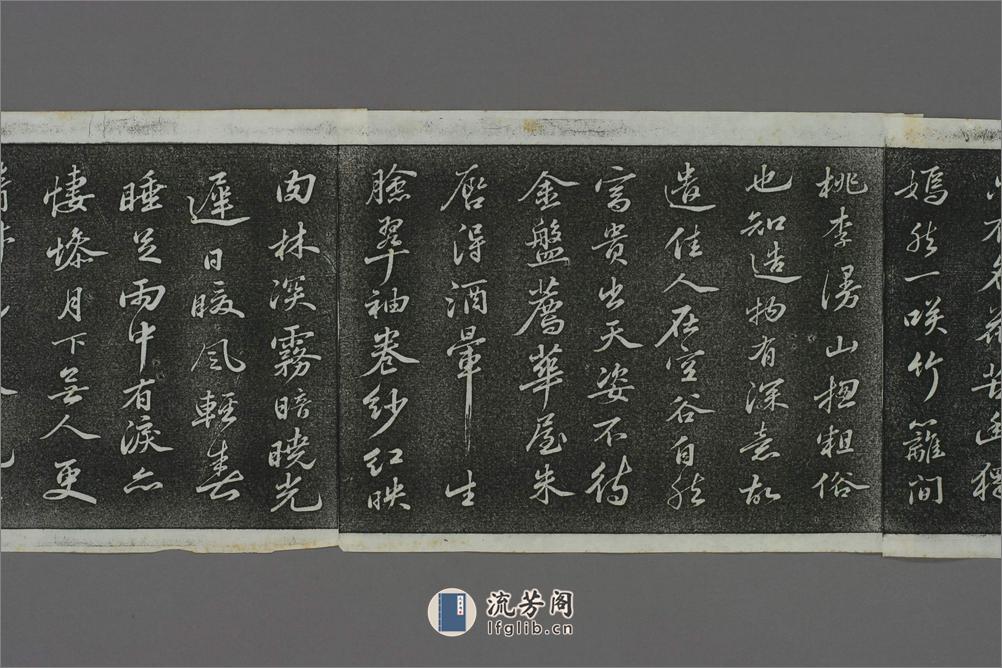 名花苦幽獨
嫣然一咲竹籬間
桃李漫山揔粗俗
也知造物有深意故
遣佳人在空谷自然
富貴出天姿不待
金盤薦華屋朱
唇得酒暈生
臉翠袖卷紗紅映
肉林深霧暗曉光
遲日暖風輕春
睡足雨中有淚亦
悽慘月下無人更
流芳阁
lfglib.cn